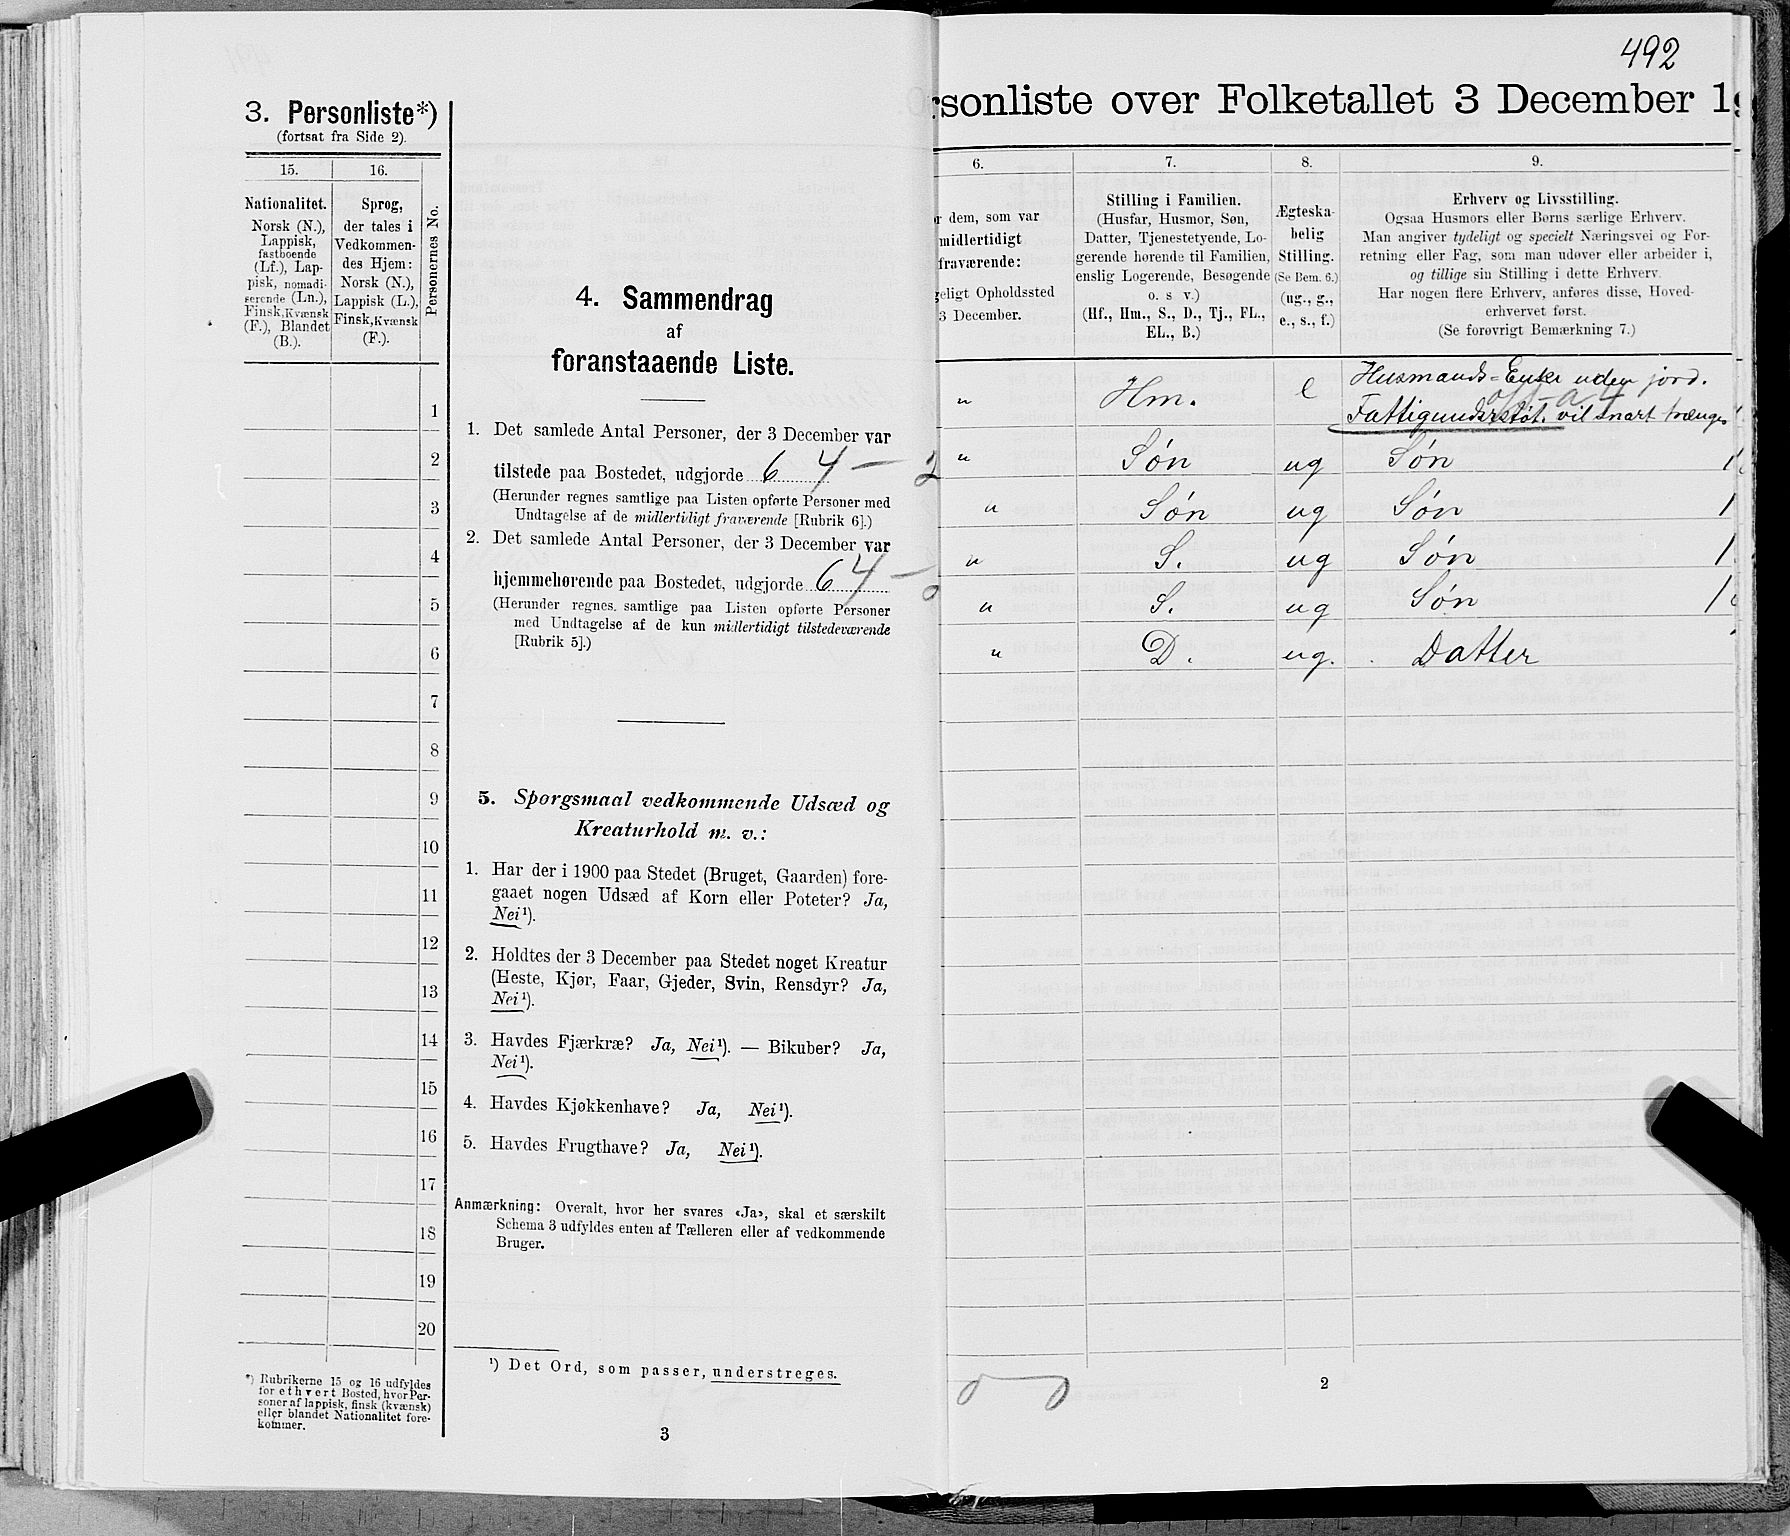 3. Personliste*)
(fortsat fra Side 2).
15.
16.
Personernes No.
Nationalitet.
Norsk (N.),
Lappisk,
fastboende
(Lf.), Lap-
pisk, nomadi-
serende (Ln.),
Finsk, Kvænsk
(F.), Blandet
(B.).
Sprog,
der tales i
Vedkommen-
des Hjem:
Norsk (N.),
Lappisk (L.),
Finsk, Kvænsk
(F.).
1
2
3
4
5
6
7
8
9
10
11
12
13
14
15
16
17
18
19
20
*) Rubrikerne 15 og 16 udfyldes
for ethvert Bosted, hvor Per-
soner af lappisk, finsk (kvænsk)
eller blandet Nationalitet fore-
kommer.
4. Sammendrag
af
foranstaaende Liste.
1. Det samlede Antal Personer, der 3 December var
tilstede paa Bostedet, udgjorde 6 4 — 2
(Herunder regnes samtlige paa Listen opførte Personer med
Undtagelse af de midlertidigt fraværende [Rubrik 6].)
2. Det samlede Antal Personer, der 3 December var
hjemmehørende paa Bostedet, udgjorde 6 4 —
(Herunder regnes samtlige paa Listen opførte Personer
med Undtagelse af de kun midlertidigt tilstedeværende
[Rubrik 5].)
5. Spørgsmaal vedkommende Udsæd og
Kreaturhold m. v.:
1. Har der i 1900 paa Stedet (Bruget, Gaarden) fore-
gaaet nogen Udsæd af Korn eller Poteter? Ja,
Nei¹).
2. Holdtes der 3 December paa Stedet noget Kreatur
(Heste, Kjør, Faar, Gjeder, Svin, Rensdyr? Ja,
Nei¹).
3. Havdes Fjærkræ? Ja, Nei¹). — Bikuber? Ja,
Nei¹).
4. Havdes Kjøkkenhave? Ja, Nei¹).
5. Havdes Frugthave? Ja, Nei¹).
Anmærkning: Overalt, hvor her svares «Ja», skal et særskilt
Schema 3 udfyldes enten af Tælleren eller af vedkommende
Bruger.
¹) Det Ord, som passer, understreges.
3
492
rsonliste over Folketallet 3 December 1
6.
7.
8.
9.
r dem, som var
midlertidigt
fraværende:
geligt Opholdssted
3 December.
Stilling i Familien.
(Husfar, Husmor, Søn,
Datter, Tjenestetyende, Lo-
gerende hørende til Familien,
enslig Logerende, Besøgende
o. s v.)
(Hf., Hm., S., D., Tj., FL.,
EL., B.)
Ægteska-
belig
Stilling.
(Se Bem. 6.)
(ug., g.,
e., s., f.)
Erhverv og Livsstilling.
Ogsaa Husmors eller Børns særlige Erhverv.
Man angiver tydeligt og specielt Næringsvei og For-
retning eller Fag, som man udøver eller arbeider i,
og tillige sin Stilling i dette Erhverv.
Har nogen flere Erhverv, anføres disse, Hoved-
erhvervet først.
(Se forøvrigt Bemærkning 7.)
" Hm. e Husmands=Enke uden jord.
Fattigunderstøt. vil snart trænges
" Søn ug Søn 1
" Søn ug Søn 1
" S. ug Søn 1
" S. ug Søn 1
" D. ug. Datter
2